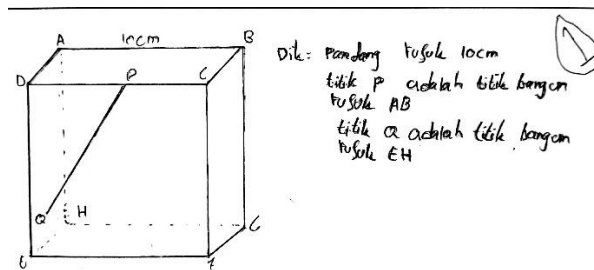 10cm
A
B
D
P
C
Q
H
G
E
F
Dik: Pandang rusuk 10cm
titik P adalah titik bangun
rusuk AB
titik Q adalah titik bangun
rusuk EH
1